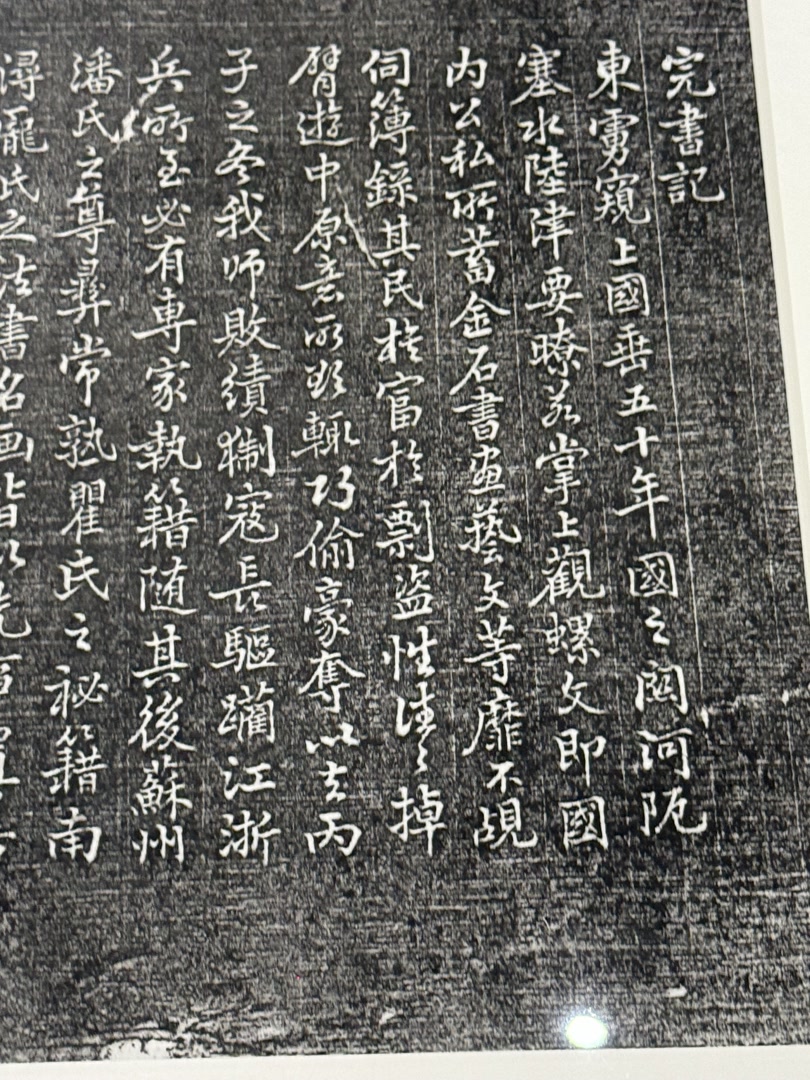 完書記
東虜窺上國垂五十年國之関河阨
塞水陸津要瞭若掌上觀螺文即國
内公私所蓄金石書画藝文等靡不覘
伺簿錄其民於富於剽盜性往〻掉
臂遊中原意所欲輒巧偷豪奪以去丙
子之冬我師敗績猘寇長驅躪江浙
兵所至必有專家執籍随其後蘇州
潘氏之尊彝常熟瞿氏之祕籍南
潯龐氏之法書名画皆